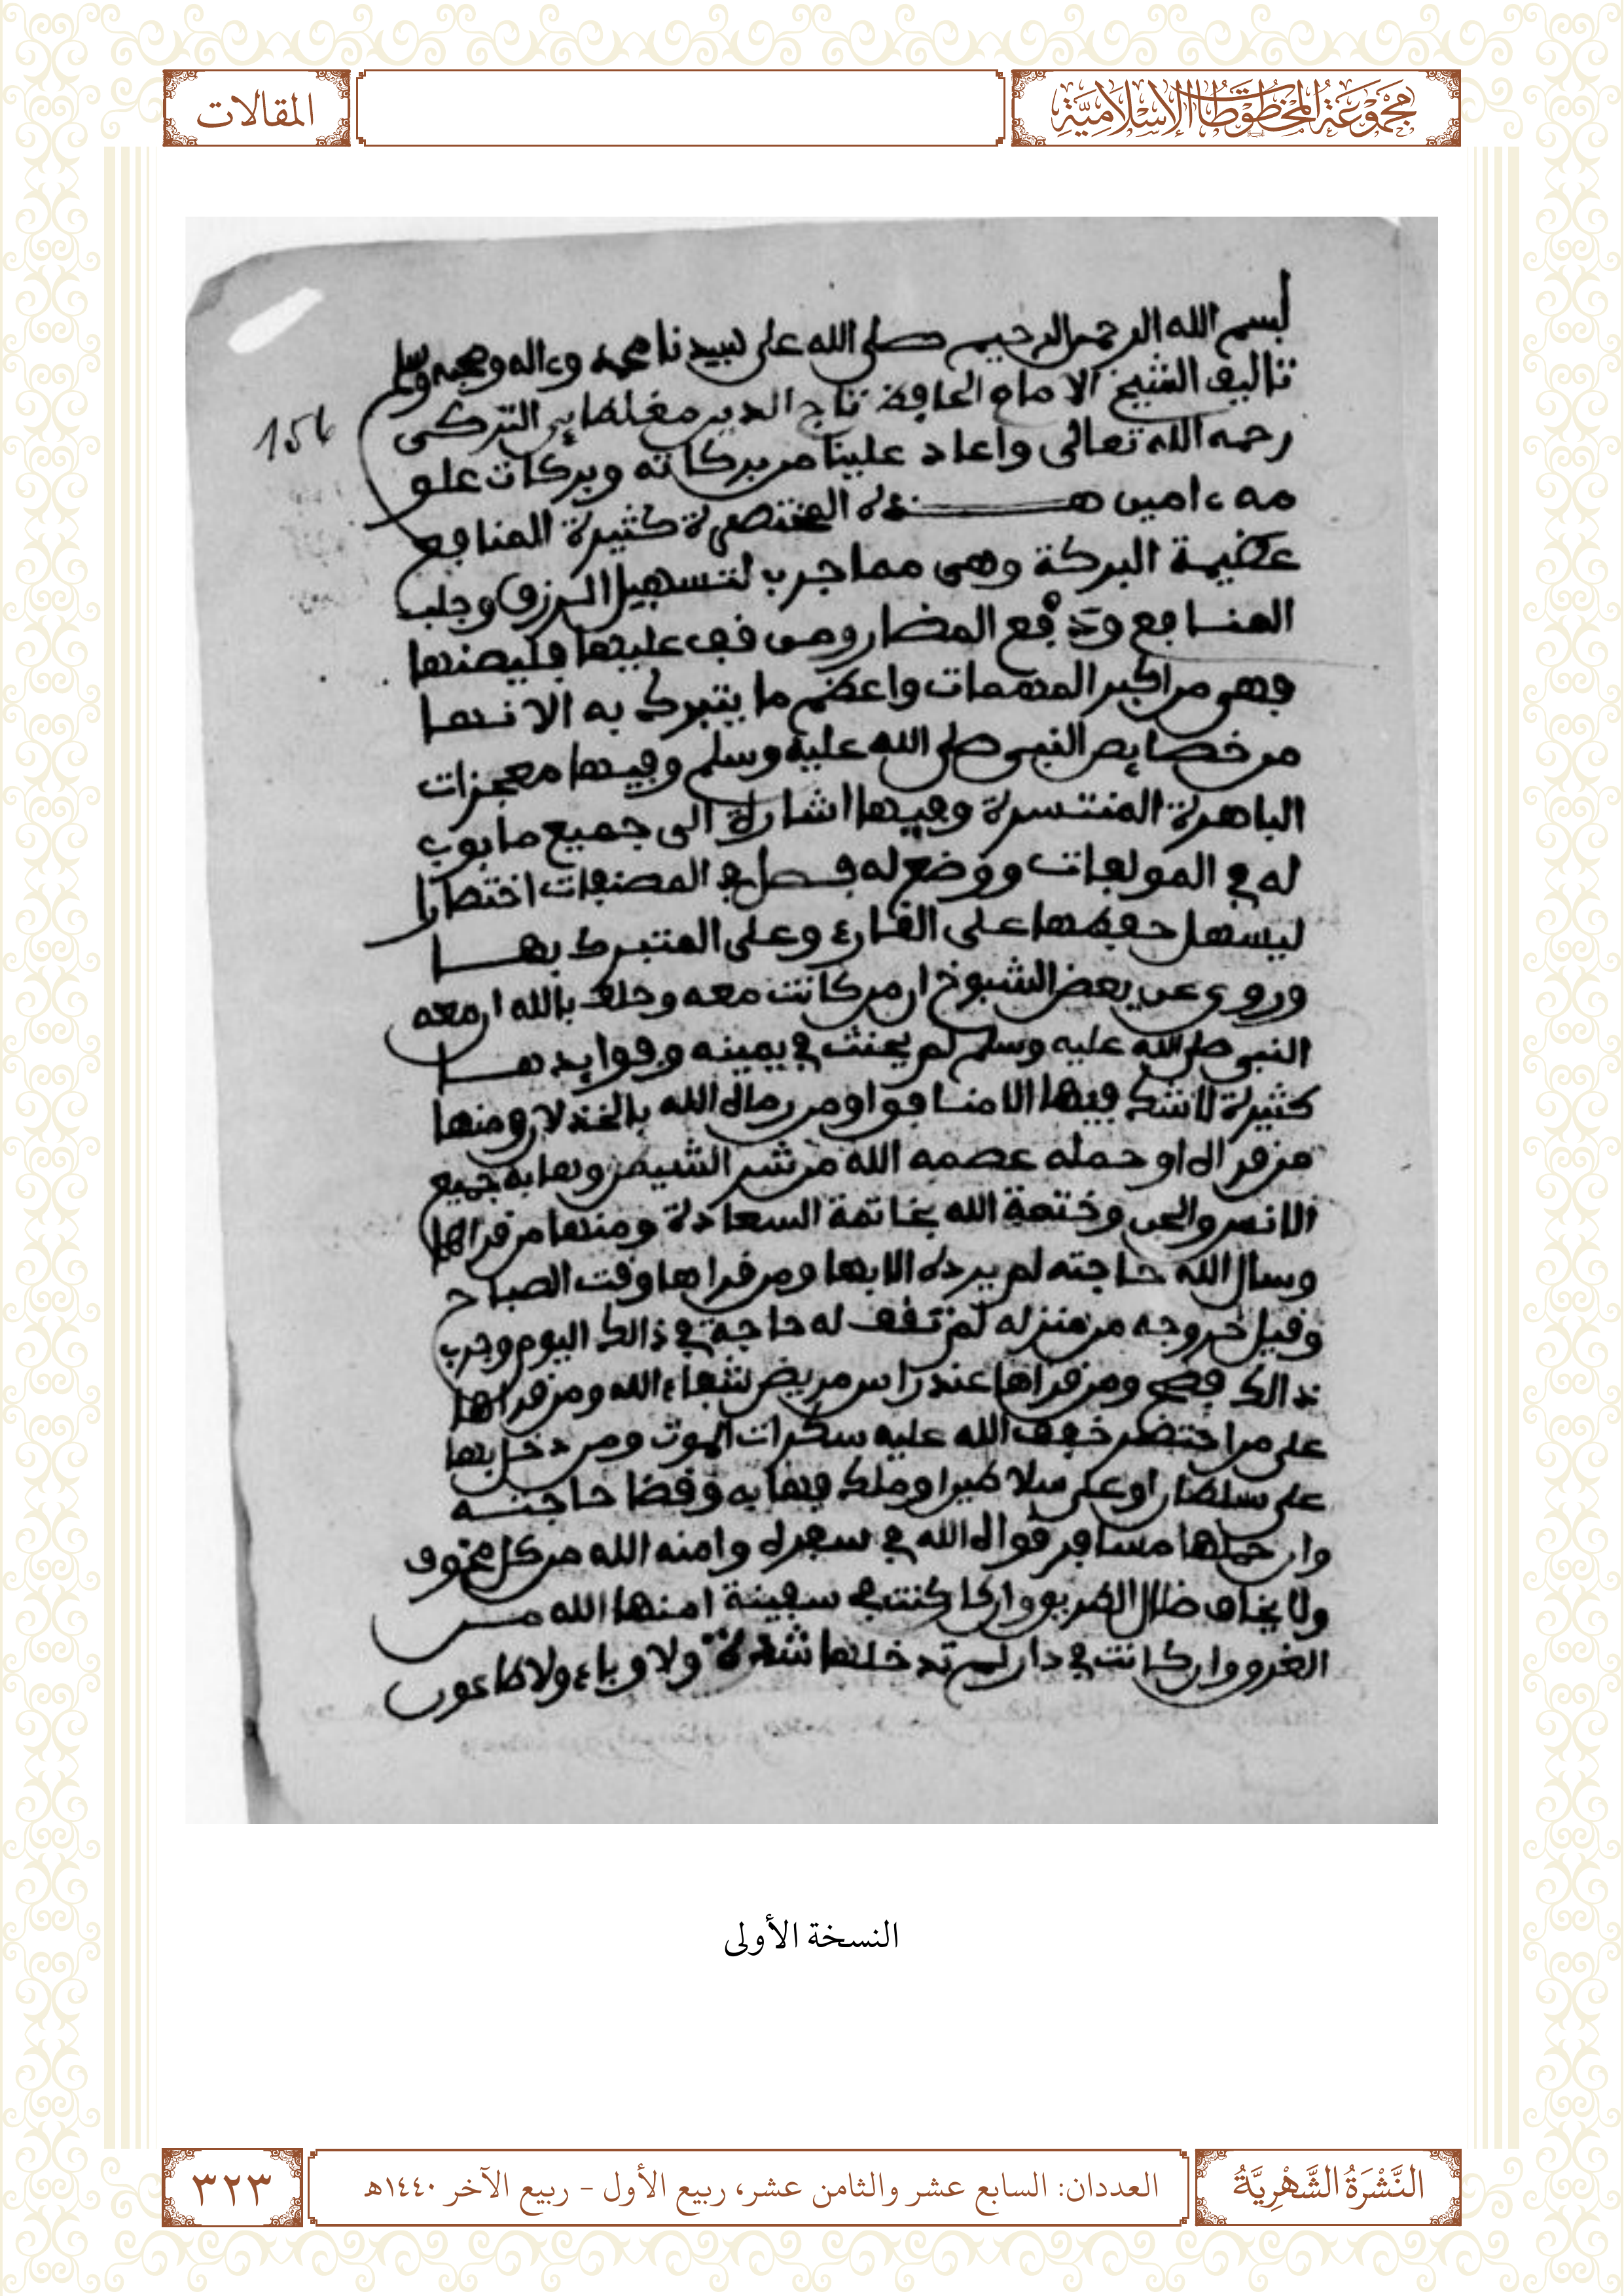 مَجْمُوعَةُ المَخْطُوطَاتِ الإِسْلَامِيَّة
المقالات
بسم الله الرحمن الرحيم صلى الله على سيدنا محمد وءاله وصحبه وسلم
تاليف الشيخ الامام الحافظ تاج الدين مغلطاي التركي
رحمه الله تعالى واعاد علينا من بركاته وبركات علو
مه ءامين هذه المختصرة كثيرة المنافع
عظيمة البركة وهي مما جرب لتسهيل الرزق وجلب
المنافع ودفع المضار ومن وقف عليها فليصنها
فهي من اكبر المهمات واعظم ما يتبرك به الانها
من خصايص النبي صلى الله عليه وسلم وفيها معجزات
الباهرة المنتسرة وفيها اشارة الى جميع ما بوب
له في المولفات ووضع له فصل في المصنفات اختصارا
ليسهل حفظها على القارئ وعلى المتبرك بها
وروي عن بعض الشيوخ ان من كانت معه وحلف بالله ان معه
النبي صلى الله عليه وسلم لم يحنث في يمينه وفوايدها
كثيرة لا شك فيها الا منافق او من رماه الله بالخذلان ومنها
من قراه او حمله عصمه الله من شر الشيطن وهابه جميع
الانس والجن وختمة الله بخاتمة السعادة ومنها من قراها
وسال الله حاجته لم يرده الا بها ومن قراها وقت الصباح
وقبل خروجه من منزله لم تقف له حاجة في ذالك اليوم وجرب
ذالك فصح ومن قراها عند راس مريض شفاه الله ومن قراها
على من احتضر خفف الله عليه سكرات الموت ومن دخل بها
على سلطان او على سلاطين او ملك فهابه وقضا حاجته
وان حملها مسافر قواه الله في سفره وامنه الله من كل مخوف
ولا يخاف ضلال الطريق وان كا كنت في سفينة امنها الله من
الغرو وان كانت في دار لم تدخلها شدة ولا وباء ولا طاعون
النسخة الأولى
النَّشْرَةُ الشَّهْرِيَّةُ
العددان: السابع عشر والثامن عشر، ربيع الأول - ربيع الآخر ١٤٤٠هـ
٣٢٣